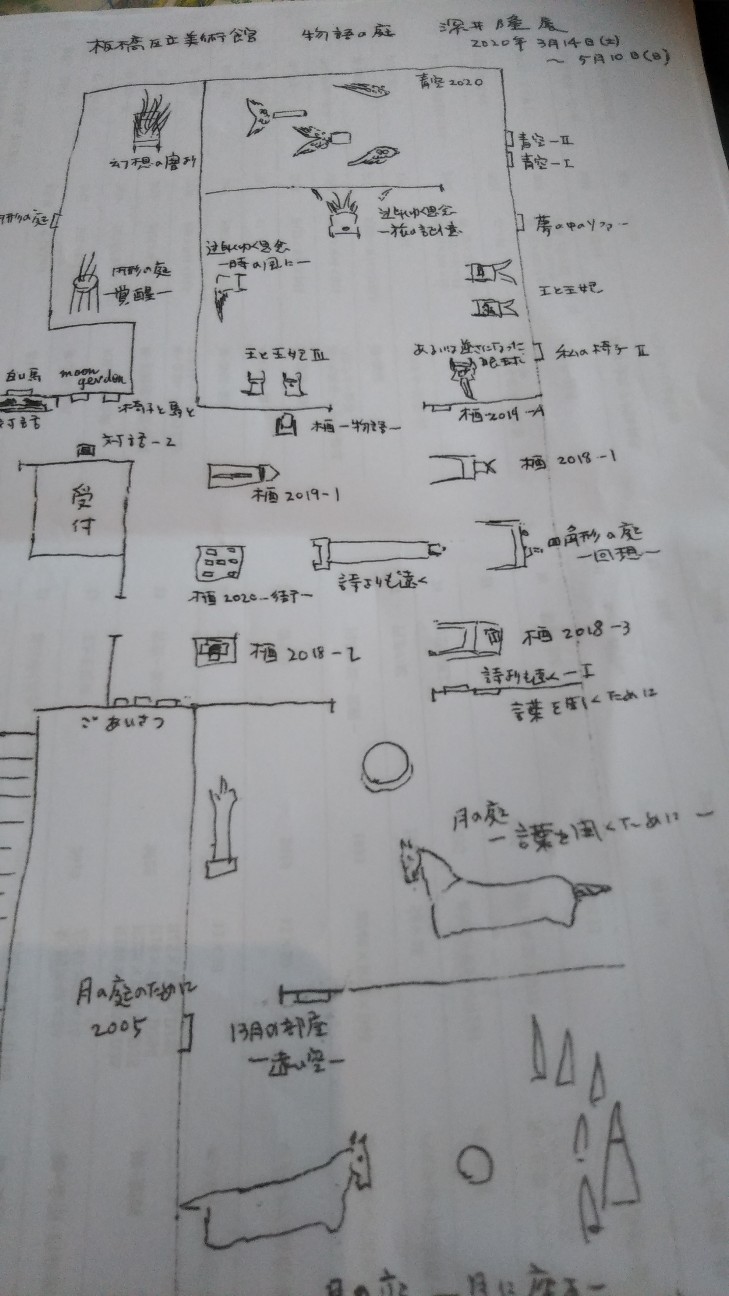 板橋区立美術館 物語の庭 深井隆展
2020年 3月14日(土)
～ 5月10日(日)
青空 2020
幻想の磨り
青空-Ⅱ
青空-Ⅰ
円形の庭
逝ゆく思念
-旅の記憶
夢の中のソファー
円形の庭
-覚醒-
逝ゆく思念
-時の風に-
王と王妃
王と王妃 Ⅲ
あるいは逆さになった
眼球
私の椅子 Ⅱ
白い馬
moon
garden
対話
椅子と馬と
栖-物語-
栖 2019-A
対話-2
受
付
栖 2019-1
栖 2018-1
四角形の庭
-回想-
栖 2020-結界-
詩よりも遠く
栖 2018-2
栖 2018-3
詩よりも遠く-Ⅰ
言葉を聞くために
ごあいさつ
月の庭
-言葉を聞くために-
月の庭のために
2005
13月の部屋
-遠い空-
月の庭 -月に座る-